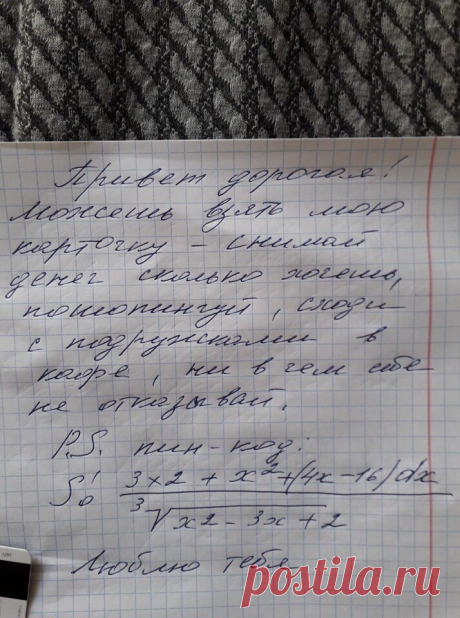 Привет дорогая!
Можешь взять мою
карточку – снимай
денег сколько хочешь,
пошопингуй, сходи
с подружками в
кафе, ни в чем себе
не отказывай.
P.S. пин-код:
∫₀¹ 3x2 + x² + (4x - 16) dx
³√x2 - 3x + 2
Люблю тебя
postila.ru